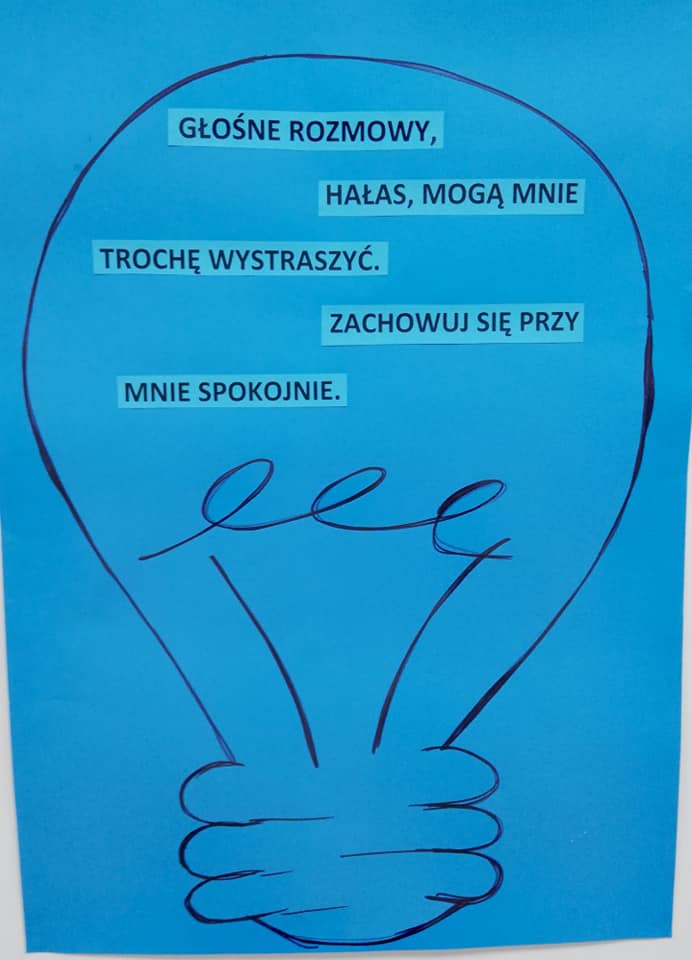 GŁOŚNE ROZMOWY,
HAŁAS, MOGĄ MNIE
TROCHĘ WYSTRASZYĆ.
ZACHOWUJ SIĘ PRZY
MNIE SPOKOJNIE.